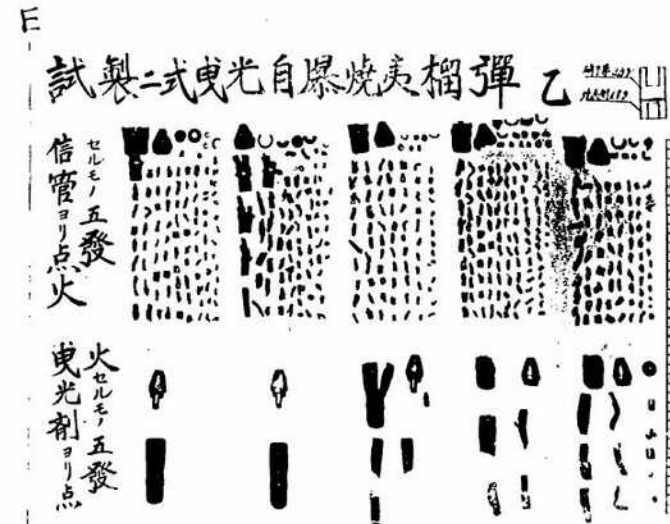 試製二式曳光自爆焼夷榴彈 乙
信管ヨリ点火
セルモノ五發
曳光剤ヨリ点
火セルモノ五發